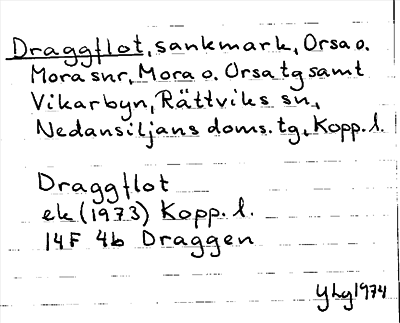 Draggflot, sankmark, Orsa o.
Mora snr, Mora o. Orsa tg samt
Vikarbyn, Rättviks sn,
Nedansiljans doms. tg, Kopp. l.
Draggflot
ek (1973) Kopp. l.
14F 4b Draggen
YLg 1974